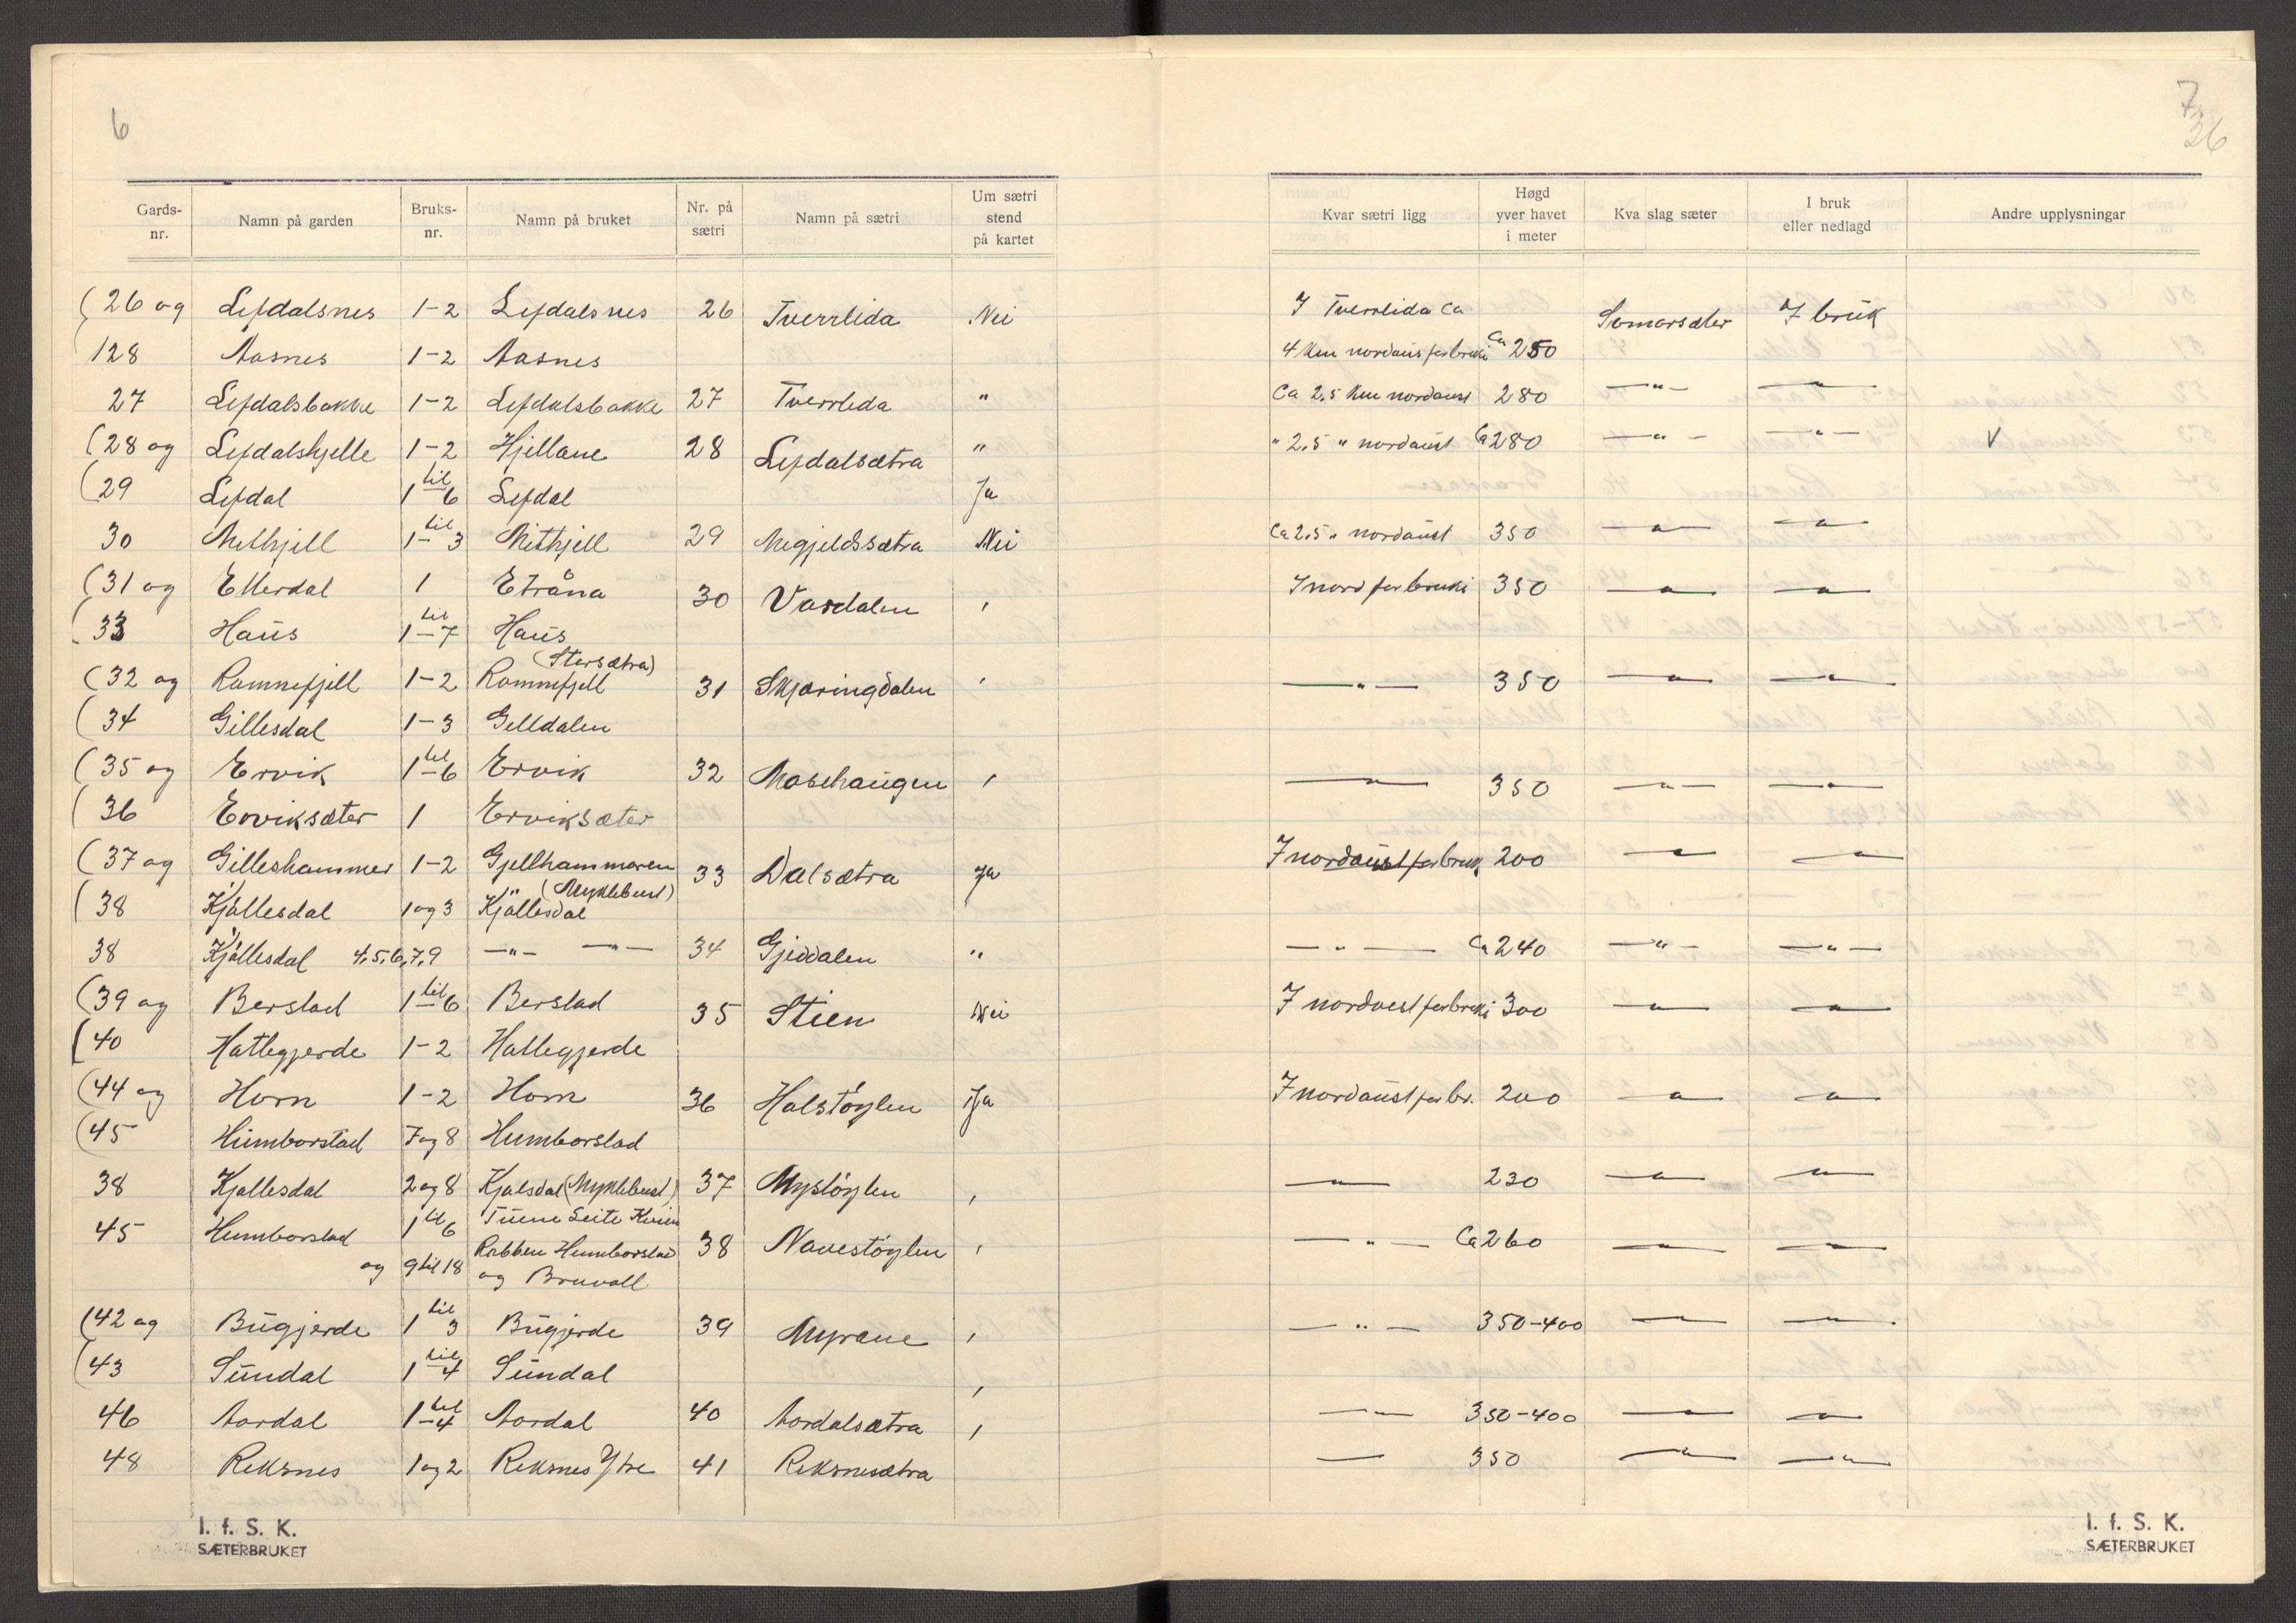 6
Gards-nr. Namn på garden Bruks-nr. Namn på bruket Nr. på sætri Namn på sætri Um sætri stend på kartet
(26 og Lefdalsnes 1-2 Lefdalsnes 26 Tverrlida Nei
128 Aasnes 1-2 Aasnes
27 Lefdalsbakke 1-2 Lefdalsbakke 27 Tverrlida "
(28 og Lefdalshjelle 1-2 Hjellane 28 Lefdalsætra "
(29 Lefdal 1 til 6 Lefdal Ja
30 Mithjell 1 til 3 Mithjell 29 Megjeldssætra Nei
(31 og Etterdal 1 Etråna 30 Vardalen "
(33 Haus 1 til 7 Haus
(32 og Ramnefjell 1-2 Ramnefjell (Storsætra) 31 Skjæringdalen "
(34 Gillesdal 1-3 Gelldalen
(35 og Ervik 1 til 6 Ervik 32 Mosehaugen "
(36 Erviksæter 1 Erviksæter
(37 og Gilleshammer 1-2 Gjellhammaren 33 Dalsætra Ja
(38 Kjøllesdal 1 og 3 Kjøllesdal (Myklebust)
38 Kjøllesdal 4,5,6,7,9 -"- -"- 34 Gjeddalen "
(39 og Berstad 1 til 6 Berstad 35 Stien Nei
(40 Hatlegjerde 1-2 Hatlegjerde
(44 og Horn 1-2 Horn 36 Halstøylen Ja
(45 Humborstad 7 og 8 Humborstad
38 Kjøllesdal 2 og 8 Kjølsdal (Myklebust) 37 Mystøylen "
45 Humborstad 1 til 6 Tuene Leite
og 9 til 18 Rabben Humborstad og Bruvoll 38 Navestøylen "
(42 og Bugjerde 1 til 3 Bugjerde 39 Myrane "
(43 Sundal 1 til 4 Sundal "
46 Aardal 1 til 4 Aardal 40 Aardalsætra "
48 Reksnes 1 og 2 Reksnes Ytre 41 Reksnesætra
I. f. S. K.
SÆTERBRUKET
7
26
Kvar sætri ligg Høgd yver havet i meter Kva slag sæter I bruk eller nedlagd Andre upplysningar
I Tverrlida ca Somarsæter I bruk
4 km nordaust for bruki ca 250
Ca 2,5 km nordaust 280 -"- -"-
" 2,5 " nordaust Ca 280 -"- -"- V
Ca 2,5 " nordaust 350 -"- -"-
I nord for bruki 350 -"- -"-
-"- 350 -"- -"-
-"- 350 -"- -"-
I nordaust for bruk. 200 -"- -"-
-"- Ca 240 -"- -"-
I nordvest for bruki 300 -"- -"-
I nordaust for br. 200 -"- -"-
-"- 230 -"- -"-
-"- Ca 260 -"- -"-
-"- 350-400 -"- -"-
-"- 350-400 -"- -"-
-"- 350 -"- -"-
I. f. S. K.
SÆTERBRUKET